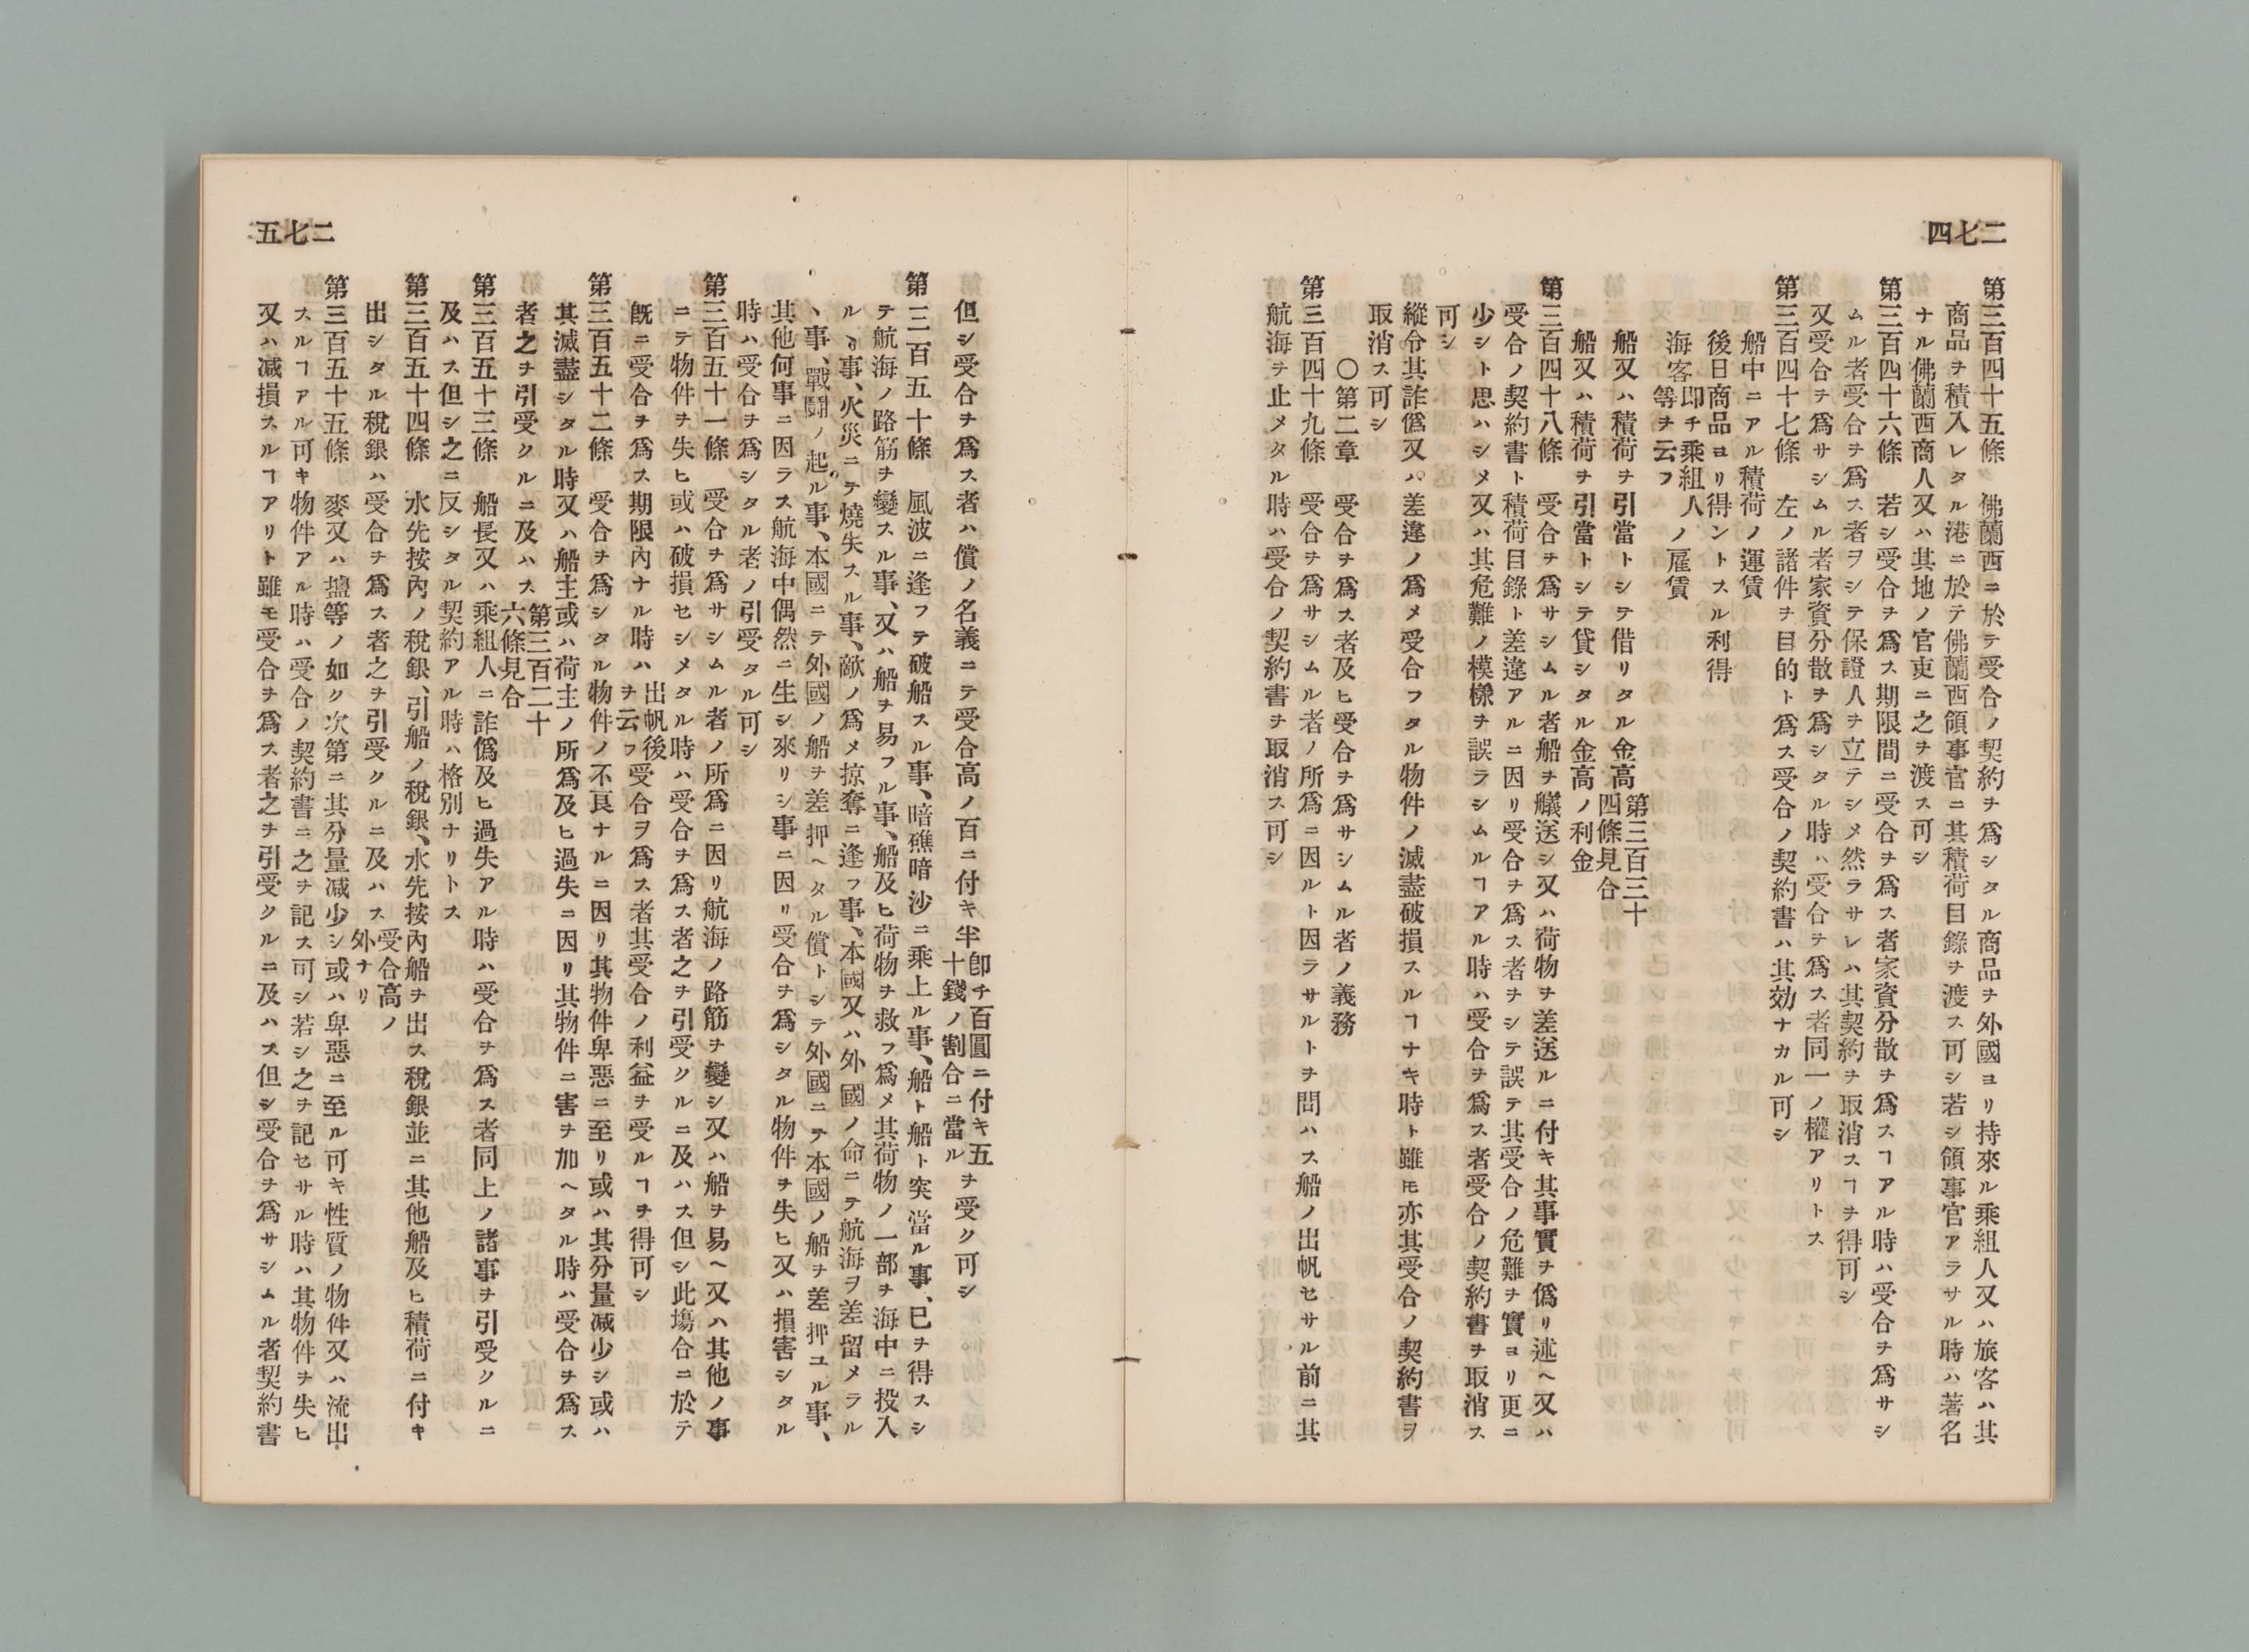 二七四
第三百四十五條　佛蘭西ニ於テ受合ノ契約ヲ爲シタル商品ヲ外國ヨリ持來ル乘組人又ハ旅客ハ其
商品ヲ積入レタル港ニ於テ佛蘭西領事官ニ其積荷目錄ヲ渡ス可シ若シ領事官アラサル時ハ著名
ナル佛蘭西商人又ハ其地ノ官吏ニ之ヲ渡ス可シ
第三百四十六條　若シ受合ヲ爲ス期限間ニ受合ヲ爲ス者家資分散ヲ爲スヿアル時ハ受合ヲ爲サシ
ムル者受合ヲ爲ス者ヲシテ保證人ヲ立テシメ然ラサレハ其契約ヲ取消スヿヲ得可シ
又受合ヲ爲サシムル者家資分散ヲ爲シタル時ハ受合ヲ爲ス者同一ノ權アリトス
第三百四十七條　左ノ諸件ヲ目的ト爲ス受合ノ契約書ハ其効ナカル可シ
船中ニアル積荷ノ運賃
後日商品ヨリ得ントスル利得
海客即チ乘組人ノ雇賃
等ヲ云フ
船又ハ積荷ヲ引當トシテ借リタル金高第三百三十
四條見合
船又ハ積荷ヲ引當トシテ貸シタル金高ノ利金
第三百四十八條　受合ヲ爲サシムル者船ヲ艤送シ又ハ荷物ヲ差送ルニ付キ其事實ヲ僞リ述ヘ又ハ
受合ノ契約書ト積荷目錄ト差違アルニ因リ受合ヲ爲ス者ヲシテ誤テ其受合ノ危難ヲ實ヨリ更ニ
少シト思ハシメ又ハ其危難ノ模樣ヲ誤ラシムルヿアル時ハ受合ヲ爲ス者受合ノ契約書ヲ取消ス
可シ
縱令其詐僞又ハ差違ノ爲メ受合フタル物件ノ滅盡破損スルヿナキ時ト雖モ亦其受合ノ契約書ヲ
取消ス可シ
〇第二章　受合ヲ爲ス者及ヒ受合ヲ爲サシムル者ノ義務
第三百四十九條　受合ヲ爲サシムル者ノ所爲ニ因ルト因ラサルトヲ問ハス船ノ出帆セサル前ニ其
航海ヲ止メタル時ハ受合ノ契約書ヲ取消ス可シ
二七五
但シ受合ヲ爲ス者ハ償ノ名義ニテ受合高ノ百ニ付キ半即チ百圓ニ付キ五
十錢ノ割合ニ當ルヲ受ク可シ
第三百五十條　風波ニ逢フテ破船スル事、暗礁暗沙ニ乘上ル事、船ト船ト突當ル事、已ヲ得スシ
テ航海ノ路筋ヲ變スル事、又ハ船ヲ易フル事、船及ヒ荷物ヲ救フ爲メ其荷物ノ一部ヲ海中ニ投入
ルヽ事、火災ニテ燒失スル事、敵ノ爲メ掠奪ニ逢フ事、本國又ハ外國ノ命ニテ航海ヲ差留メラル
ヽ事、戰鬪ノ起ル事、本國ニテ外國ノ船ヲ差押ヘタル償トシテ外國ニテ本國ノ船ヲ差押ユル事、
其他何事ニ因ラス航海中偶然ニ生シ來リシ事ニ因リ受合ヲ爲シタル物件ヲ失ヒ又ハ損害シタル
時ハ受合ヲ爲シタル者ノ引受タル可シ
第三百五十一條　受合ヲ爲サシムル者ノ所爲ニ因リ航海ノ路筋ヲ變シ又ハ船ヲ易ヘ又ハ其他ノ事
ニテ物件ヲ失ヒ或ハ破損セシメタル時ハ受合ヲ爲ス者之ヲ引受クルニ及ハス但シ此塲合ニ於テ
既ニ受合ヲ爲ス期限內ナル時ハ出帆後
ヲ云フ受合ヲ爲ス者其受合ノ利益ヲ受ルヿヲ得可シ
第三百五十二條　受合ヲ爲シタル物件ノ不良ナルニ因リ其物件卑惡ニ至リ或ハ其分量減少シ或ハ
其滅盡シタル時又ハ船主或ハ荷主ノ所爲及ヒ過失ニ因リ其物件ニ害ヲ加ヘタル時ハ受合ヲ爲ス
者之ヲ引受クルニ及ハス第三百二十
六條見合
第三百五十三條　船長又ハ乘組人ニ詐僞及ヒ過失アル時ハ受合ヲ爲ス者同上ノ諸事ヲ引受クルニ
及ハス但シ之ニ反シタル契約アル時ハ格別ナリトス
第三百五十四條　水先按內ノ稅銀、引船ノ稅銀、水先按內船ヲ出ス稅銀並ニ其他船及ヒ積荷ニ付キ
出シタル稅銀ハ受合ヲ爲ス者之ヲ引受クルニ及ハス受合高ノ
外ナリ
第三百五十五條　麥又ハ鹽等ノ如ク次第ニ其分量減少シ或ハ卑惡ニ至ル可キ性質ノ物件又ハ流出
スルヿアル可キ物件アル時ハ受合ノ契約書ニ之ヲ記ス可シ若シ之ヲ記セサル時ハ其物件ヲ失ヒ
又ハ減損スルヿアリト雖モ受合ヲ爲ス者之ヲ引受クルニ及ハス但シ受合ヲ爲サシムル者契約書